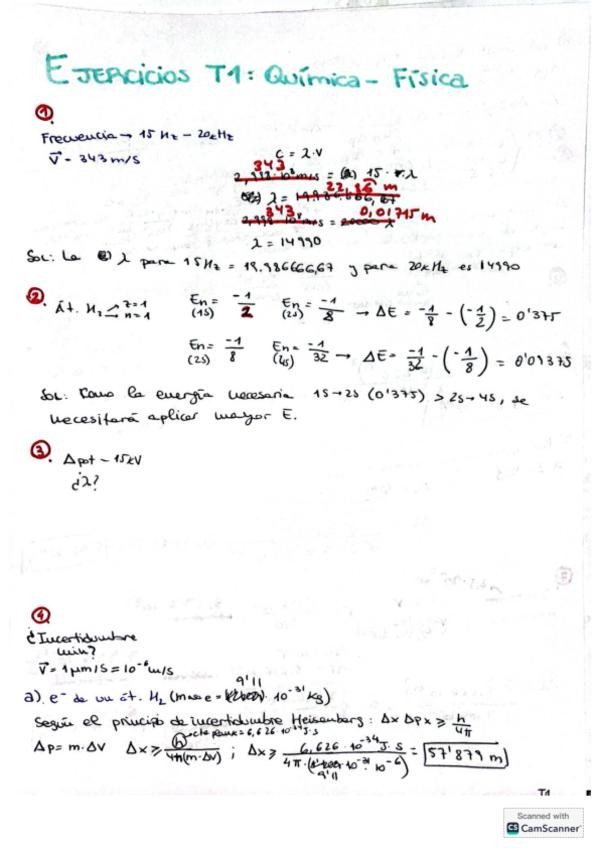 EJERCICIOS T1: QUÍMICA - FÍSICA
①
Frecuencia → 15 Hz - 20kHz
V⃗ - 343 m/s
C = λ·V
343
2,998·10⁸ m/s = 15 · λ
22,86 m
λ =
343 0,01715 m
λ = 14990
Sol: La λ para 15Hz = 19.986666,67 y para 20kHz es 14990
② Át. H₂ z=1 n=1 En = -1/2 (1s) En = -1/8 (2s) → ΔE = -1/8 - (-1/2) = 0'375
En = -1/8 (2s) En = -1/32 (4s) → ΔE = -1/32 - (-1/8) = 0'09375
Sol: Como la energía necesaria 1s→2s (0'375) > 2s→4s, se
necesitará aplicar mayor E.
③. Δpot - 15kV
¿λ?
④
¿Incertidumbre
min?
V⃗ = 1 μm/s = 10⁻⁶ m/s
9'11
a). e⁻ de un át. H₂ (masa e = · 10⁻³¹ kg)
Según el principio de incertidumbre Heisenberg: Δx Δpx ⩾ h/4π
cte Planck = 6,626·10⁻³⁴ J·s
Δp = m·ΔV Δx ⩾ h/4π(m·ΔV) ; Δx ⩾ 6,626·10⁻³⁴ J·s / 4π·(9'11·10⁻³¹·10⁻⁶) = 57'879 m
T1
Scanned with
CS CamScanner